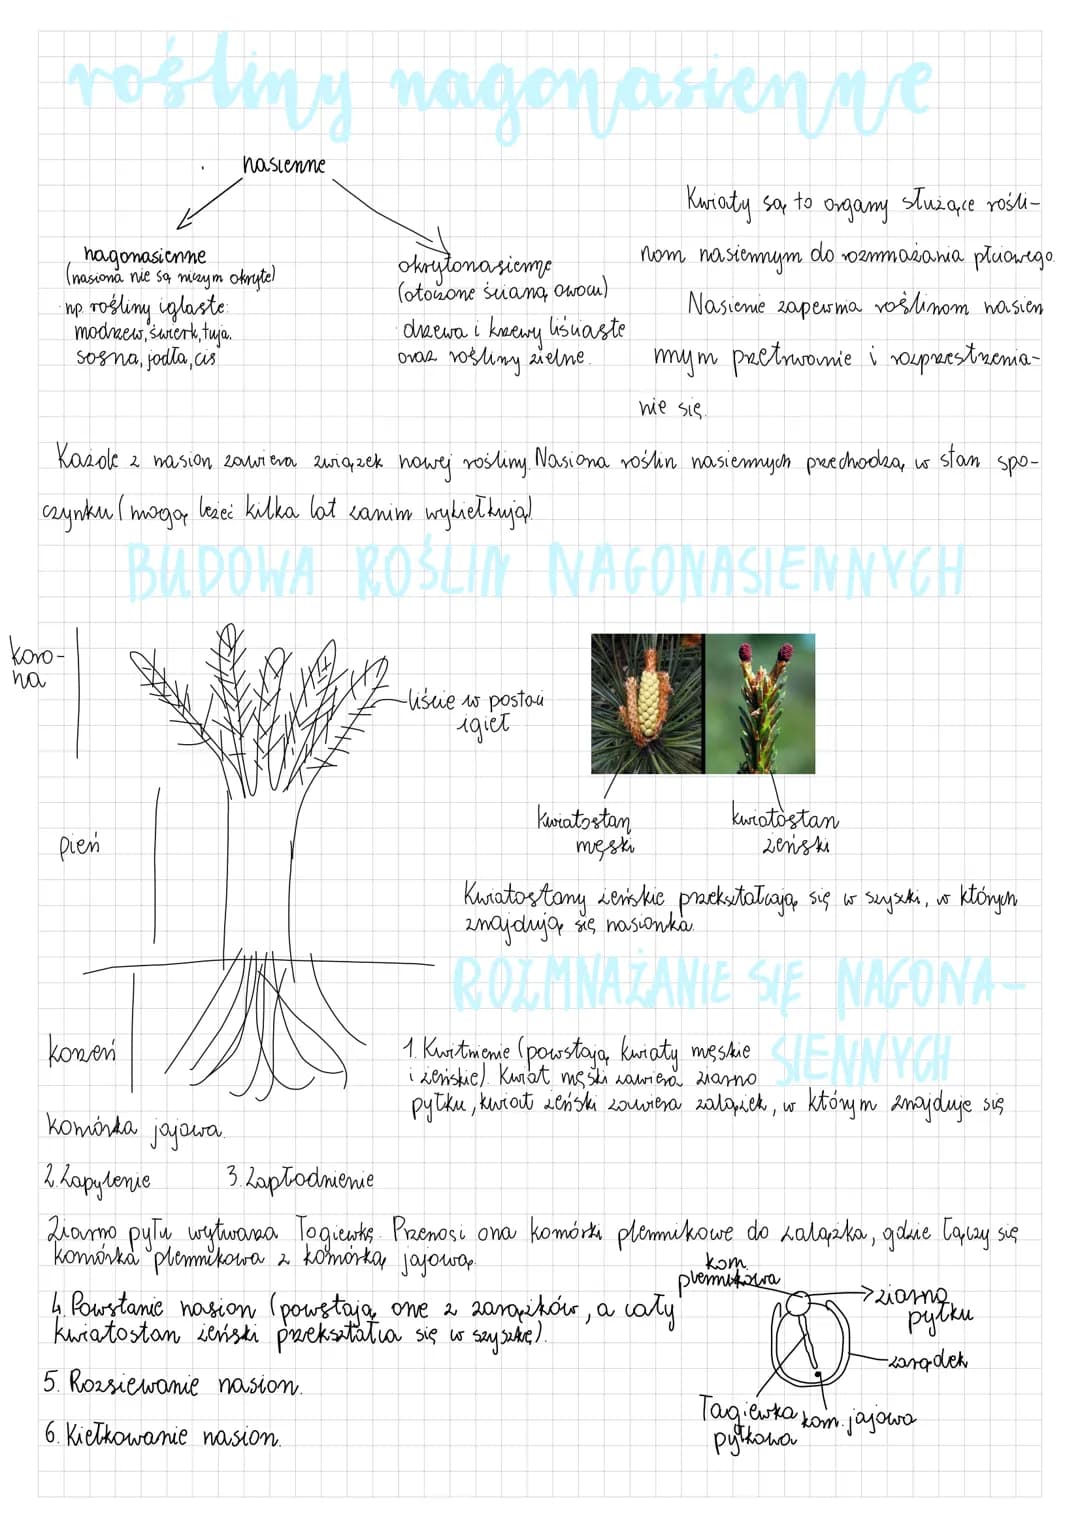 rośliny nagonasienne
nasienne
nagonasienne
(nasiona nie są niczym okryte)
np. rośliny iglaste:
modrzew, świerk, tuja,
sosna, jodła, cis
okrytonasienne
(otoczone ścianą owocu)
drzewa i krzewy liściaste
oraz rośliny zielne.
Kwiaty są to organy służące rośli-
nom nasiennym do rozmnażania płciowego.
Nasienie zapewnia roślinom nasien
nym przetrwanie i rozprzestrzenia-
nie się.
Każde z nasion zawiera związek nowej rośliny. Nasiona roślin nasiennych przechodzą w stan spo-
czynku (mogą leżeć kilka lat zanim wykiełkują).
BUDOWA ROŚLIN NAGONASIENNYCH
koro-
na
liście w postaci
igieł
pień
kwiatostan
męski
kwiatostan
żeński
Kwiatostany żeńskie przekształcają się w szyszki, w których
znajdują się nasionka.
ROZMNAŻANIE SIĘ NAGONA-
SIENNYCH
korzeń
1. Kwitnienie (powstają kwiaty męskie
i żeńskie). Kwiat męski zawiera ziarno
pyłku, kwiat żeński zawiera zalążek, w którym znajduje się
komórka jajowa.
2. Zapylenie 3. Zapłodnienie
Ziarno pyłu wytwarza łagiewkę. Przenosi ona komórki plemnikowe do zalążka, gdzie łączy się
komórka plemnikowa z komórką jajową.
4. Powstanie nasion (powstają one z zarążków, a cały
kwiatostan żeński przekształca się w szyszkę).
5. Rozsiewanie nasion.
6. Kiełkowanie nasion.
kom.
plemnikowa
ziarno
pyłku
zarądek
łagiewka
pyłkowa
kom. jajowa